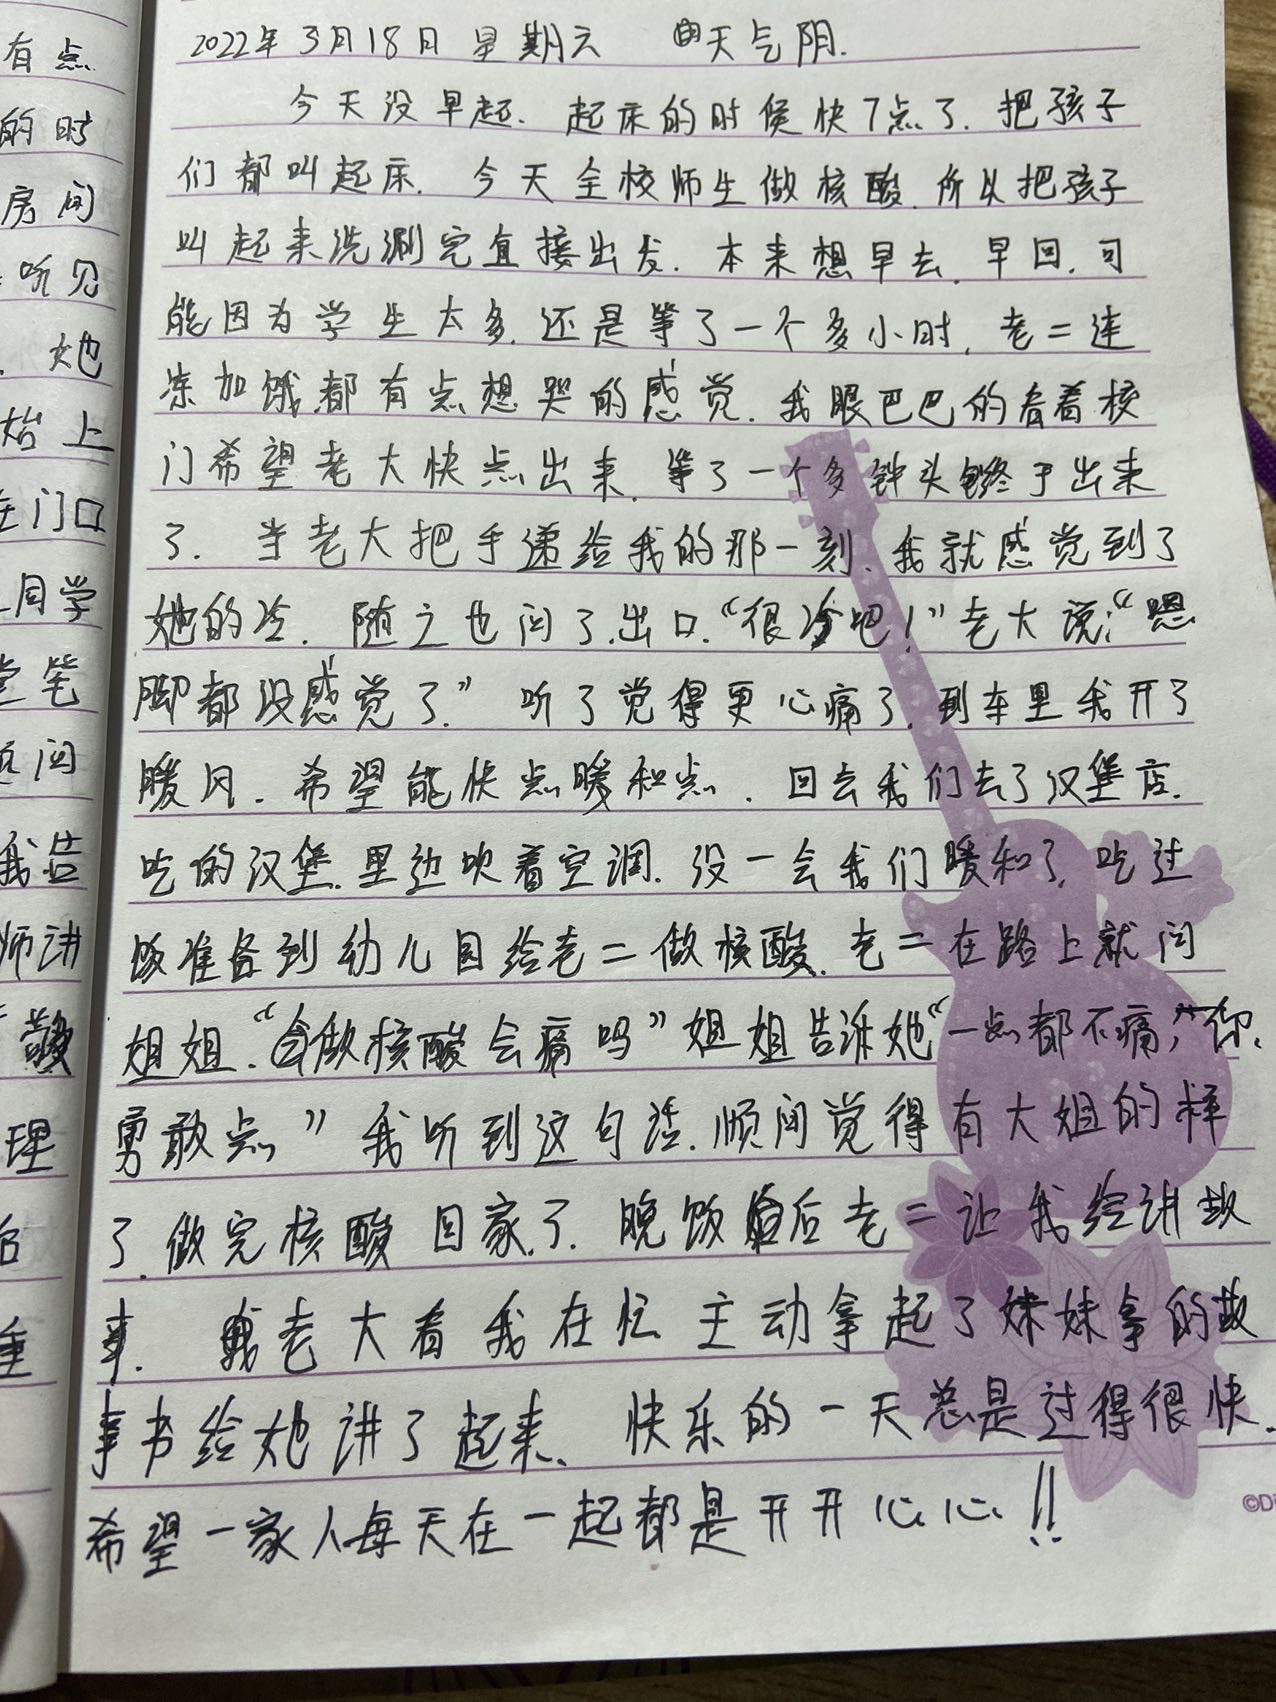 有点
的时
房间
听见
她
始上
在门口
同学
堂笔
问
我告
师讲
理
重
2022年3月18日 星期六 天气阴.
今天没早起. 起床的时候快7点了. 把孩子
们都叫起床. 今天全校师生做核酸. 所以把孩子
叫起来洗涮完直接出发. 本来想早去, 早回, 可
能因为学生太多, 还是等了一个多小时, 老二连
冻加饿都有点想哭的感觉. 我眼巴巴的看着校
门希望老大快点出来, 等了一个多钟头终于出来
了. 当老大把手递给我的那一刻, 我就感觉到了
她的冷. 随之也问了出口, “很冷吧!” 老大说: “嗯
脚都没感觉了.” 听了觉得更心痛了, 到车里我开了
暖风. 希望能快点暖和点. 回去我们去了汉堡店.
吃的汉堡. 里边吹着空调. 没一会我们暖和了, 吃过
饭准备到幼儿园给老二做核酸. 老二在路上就问
姐姐. “做核酸会痛吗” 姐姐告诉她“一点都不痛,” “你
勇敢点” 我听到这句话. 顺间觉得有大姐的样
了. 做完核酸 回家了. 晚饭后老二让我给讲故
事. 老大看我在忙 主动拿起了妹妹拿的故
事书给她讲了起来. 快乐的一天总是过得很快.
希望一家人每天在一起都是开开心心!!
©Di